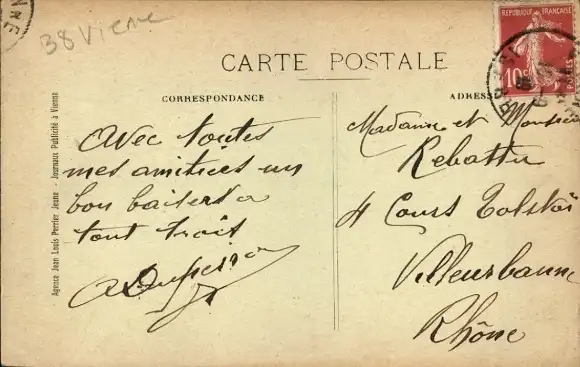 38 Vienne
CARTE POSTALE
REPUBLIQUE FRANÇAISE
10c
CORRESPONDANCE
ADRESSE
Avec toutes
mes amitiées un
bon baisers a
tout trois
Madame et Monsieur
Rebattu
4 Cours Tolstoï
Villeurbanne
Rhône
Agence Jean Louis Perrier Jeune - Journaux Publicité à Vienne